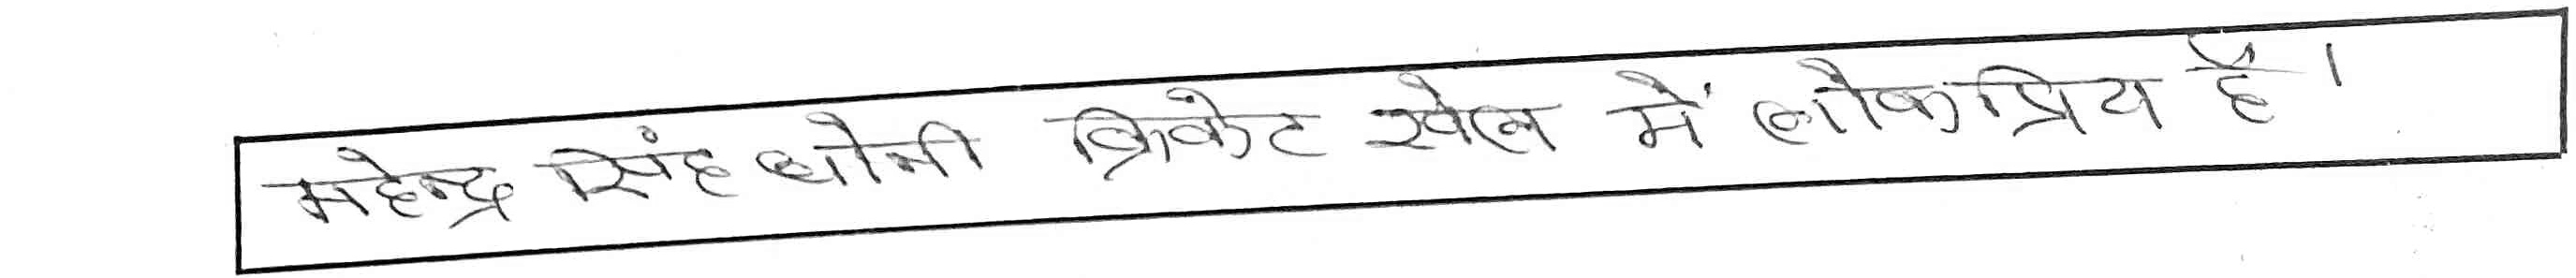 महेन्द्र सिंह धोनी क्रिकेट खेल में लोकप्रिय है।